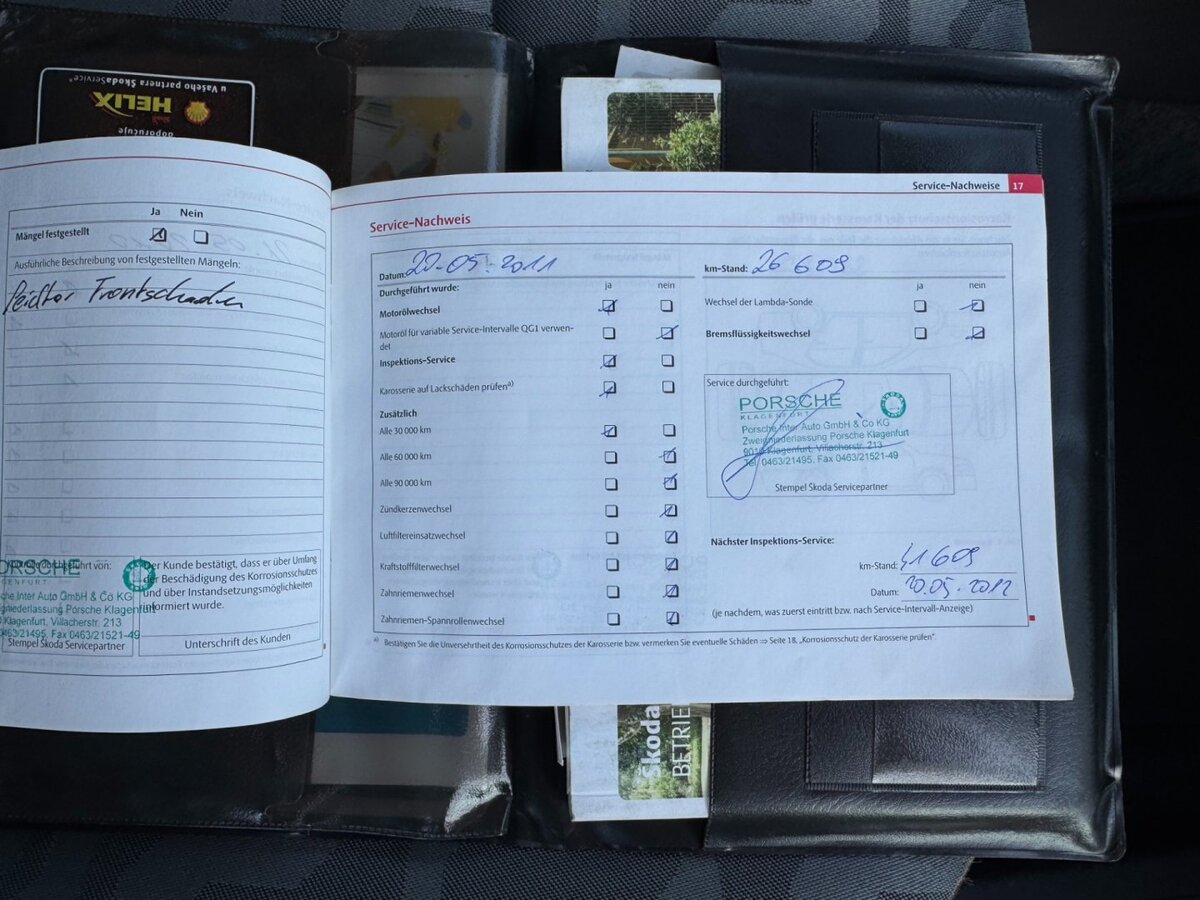 u Vašeho partnera ŠkodaService®
Shell
HELIX
doporučuje
Ja Nein
Mängel festgestellt
Ausführliche Beschreibung von festgestellten Mängeln:
Frontschaden
durchgeführt von:
PORSCHE
KLAGENFURT
Inter Auto GmbH & Co KG
Porsche Klagenfurt
Klagenfurt, Villacherstr. 213
0463/21495, Fax 0463/21521-49
Stempel Škoda Servicepartner
Der Kunde bestätigt, dass er über Umfang
der Beschädigung des Korrosionsschutzes
und über Instandsetzungsmöglichkeiten
informiert wurde.
Unterschrift des Kunden
Service-Nachweise 17
Service-Nachweis
Datum: 20-05-2011
Durchgeführt wurde: ja nein
Motorölwechsel
Motoröl für variable Service-Intervalle QG1 verwen-
det
Inspektions-Service
Karosserie auf Lackschäden prüfen a)
Zusätzlich
Alle 30 000 km
Alle 60 000 km
Alle 90 000 km
Zündkerzenwechsel
Luftfiltereinsatzwechsel
Kraftstofffilterwechsel
Zahnriemenwechsel
Zahnriemen-Spannrollenwechsel
km-Stand: 26 609
ja nein
Wechsel der Lambda-Sonde
Bremsflüssigkeitswechsel
Service durchgeführt:
PORSCHE
KLAGENFURT
Porsche Inter Auto GmbH & Co KG
Zweigniederlassung Porsche Klagenfurt
9010 Klagenfurt, Villacherstr. 213
Tel. 0463/21495, Fax 0463/21521-49
Stempel Škoda Servicepartner
Nächster Inspektions-Service:
km-Stand: 41 609
Datum: 20.05.2012
(je nachdem, was zuerst eintritt bzw. nach Service-Intervall-Anzeige)
a) Bestätigen Sie die Unversehrtheit des Korrosionsschutzes der Karosserie bzw. vermerken Sie eventuelle Schäden ⇒ Seite 18, „Korrosionsschutz der Karosserie prüfen“.
Škoda
BETRIE